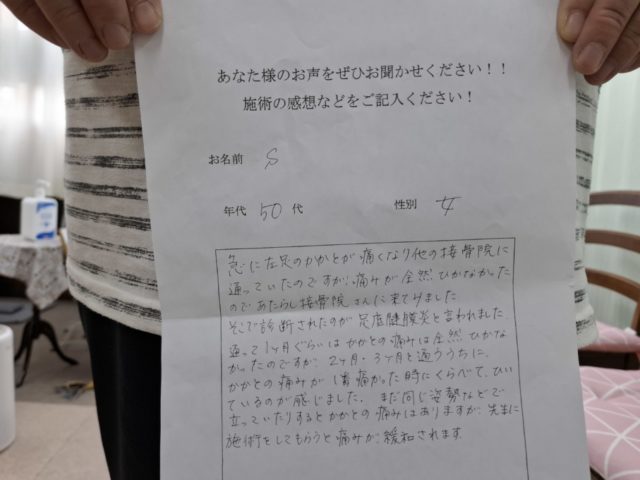 あなた様のお声をぜひお聞かせください！！
施術の感想などをご記入ください！
お名前 S
年代 50 代 性別 女
急に左足のかかとが痛くなり他の接骨院に
通っていたのですが、痛みが全然ひかなかった
のであたらし接骨院さんに来てみました。
そこで診断されたのが足底腱膜炎と言われました。
通って1ヶ月ぐらいはかかとの痛みは全然ひかな
かったのですが、2ヶ月・3ヶ月と通ううちに、
かかとの痛みが1番痛かった時にくらべて、ひい
ているのが感じました。まだ同じ姿勢などで
立っていたりするとかかとの痛みはありますが、先生に
施術をしてもらうと痛みが緩和されます。